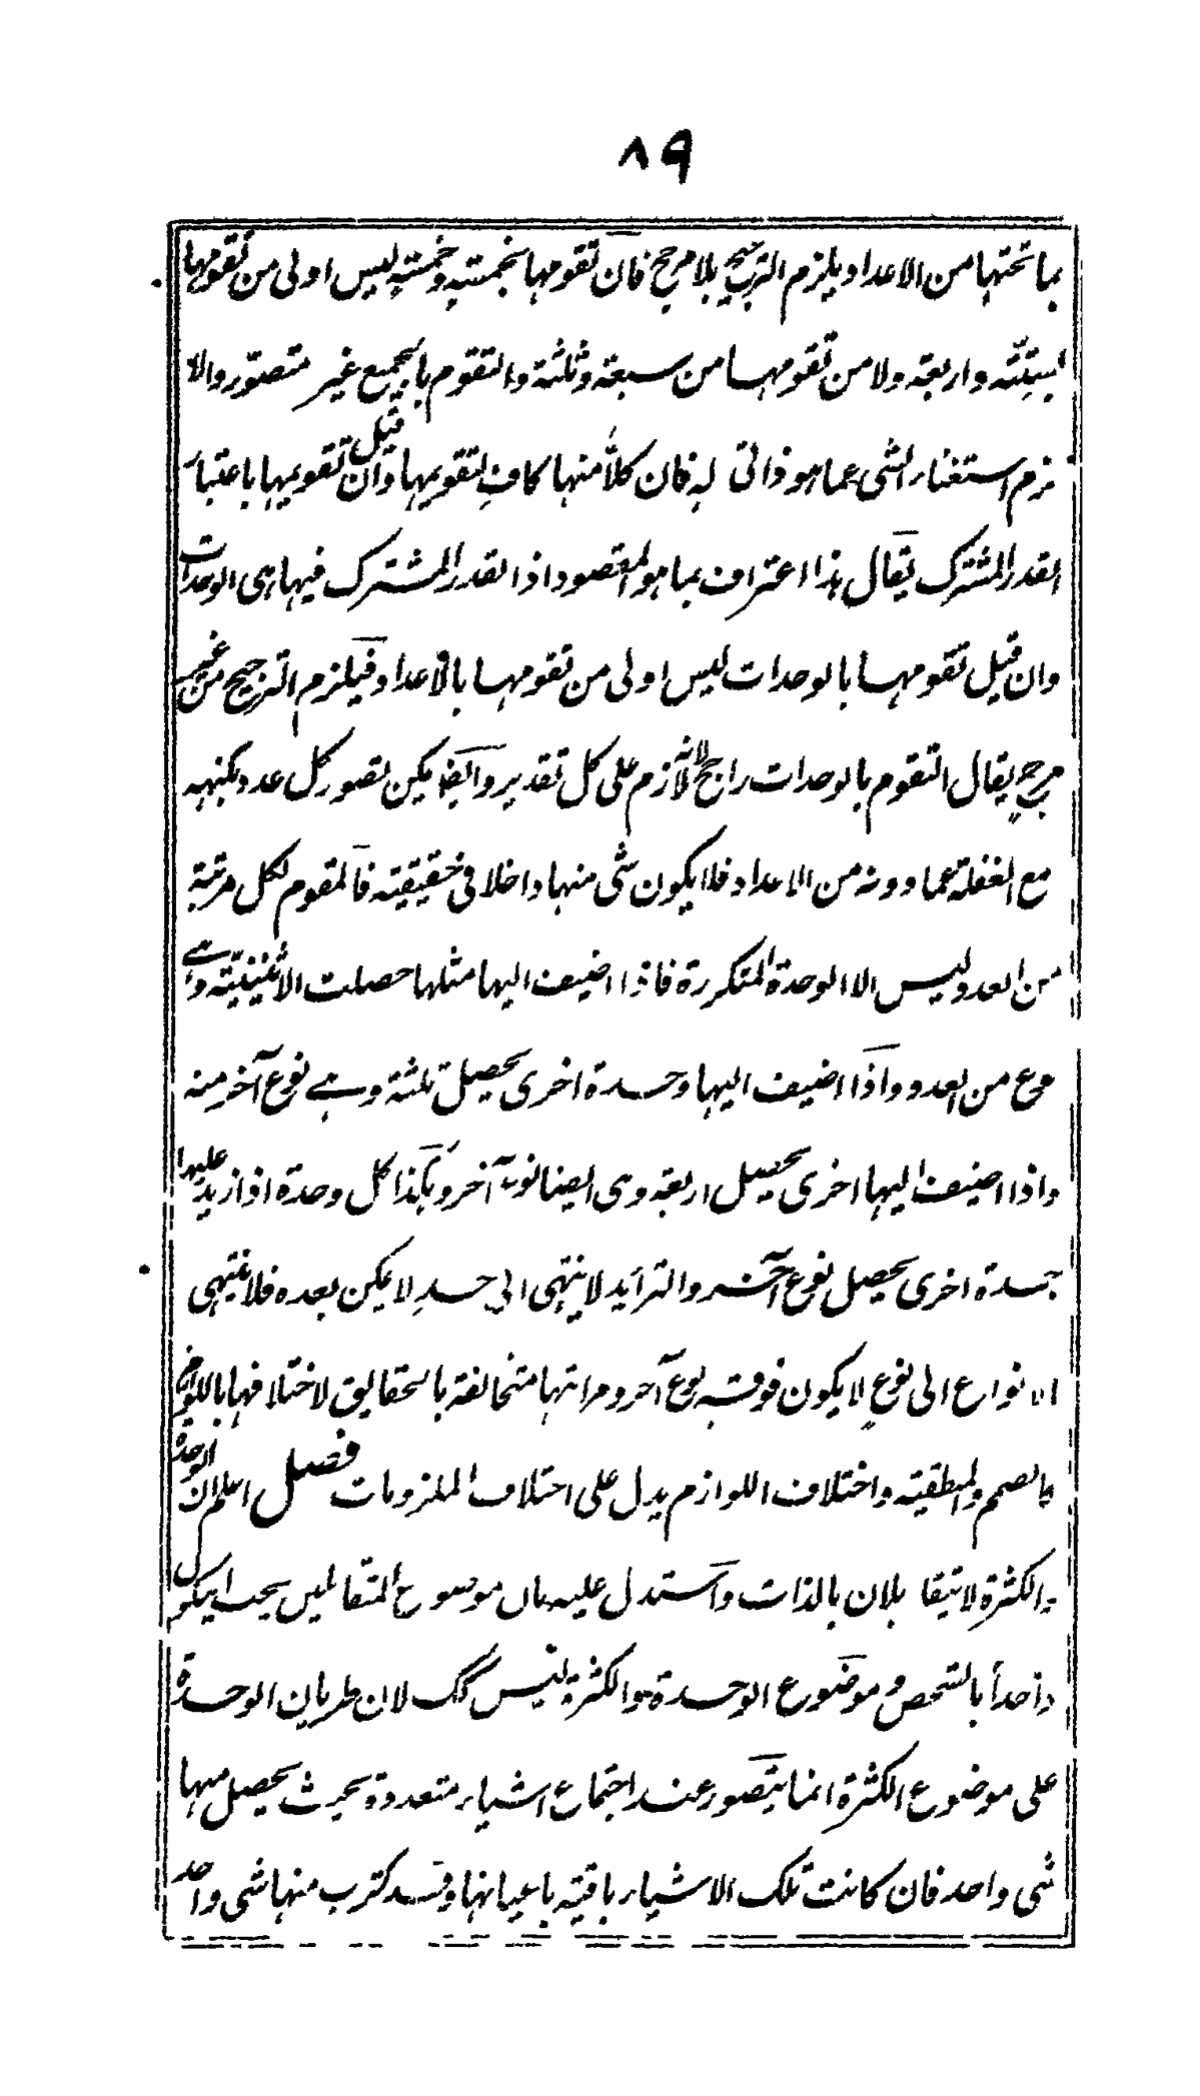 ٨٩
بما تحتها من الاعداد ويلزم الترجيح بلا مرجح فان تقومها بخمسته وخمسته ليس اولى من تقومها
بستته واربعة ولا من تقومها من سبعة وثلثة والتقوم بالجميع غير متصور والا
لزم استغناء الشى عما هو ذاتى له فان كلاً منها كافٍ لتقويمها وان قيل تقويمها باعتبار
القدر المشترك يقال هذا اعتراف بما هو المقصود اذ القدر المشترك فيها هى الوحدات
وان قيل تقومها بالوحدات ليس اولى من تقومها بالاعداد فيلزم الترجيح من غير
مرجح يقال التقوم بالوحدات راجح لانه لازم على كل تقدير وايضا يمكن تصور كل عدد بكنهه
مع الغفلة عما دونه من الاعداد فلا يكون شى منها داخلا فى حقيقيته فالمقوم لكل مرتبة
من العدد ليس الا الوحدة المتكررة فاذا اضيف اليها مثلها حصلت الاثنينيّة وهے
نوع من العدد واذا اضيف اليها وحدة اخرى يحصل ثلثة وهے نوع آخر منه
واذا اضيف اليها اخرى يحصل اربعة وهى ايضا نوع آخر وهكذا كل وحدة اذا زيد عليها
وحدة اخرى يحصل نوع آخر والتزايد لا ينتهى الى حدٍ لا يمكن بعده فلا ينتهى
الانواع الى نوعٍ لا يكون فوقه نوع آخر ومراتبها متخالفة بالحقايق لاختلافها باللوازم
كالصمم والمنطقيته واختلاف اللوازم يدل على اختلاف الملزومات فصل اعلم ان الوحدة
والكثرة لا يتقابلان بالذات واستدل عليه بان موضوع المتقابلين يجب ان يكون
واحداً بالشخص وموضوع الوحدة والكثرة ليس كك لان طريان الوحدة
على موضوع الكثرة انما يتصور عند اجتماع اشياء متعددة بحيث يحصل منها
شى واحد فان كانت تلك الاشياء باقيته باعيانها وقد تركب منها شى واحد